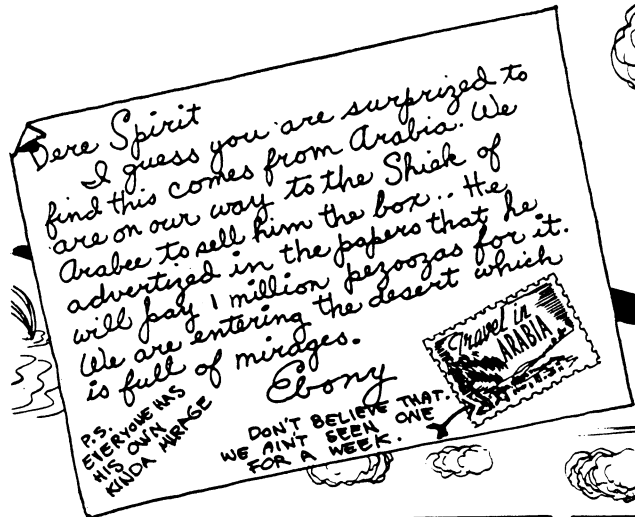 Dere Spirit
I guess you are surprized to
find this comes from Arabia. We
are on our way to the Shiek of
Arabee to sell him the box.. He
advertized in the papers that he
will pay 1 million pezoozas for it.
We are entering the desert which
is full of mirages.
Ebony
P.S.
EVERYONE HAS
HIS OWN
KINDA MIRAGE
DON'T BELIEVE THAT.
WE AIN'T SEEN ONE
FOR A WEEK.
Travel in
ARABIA